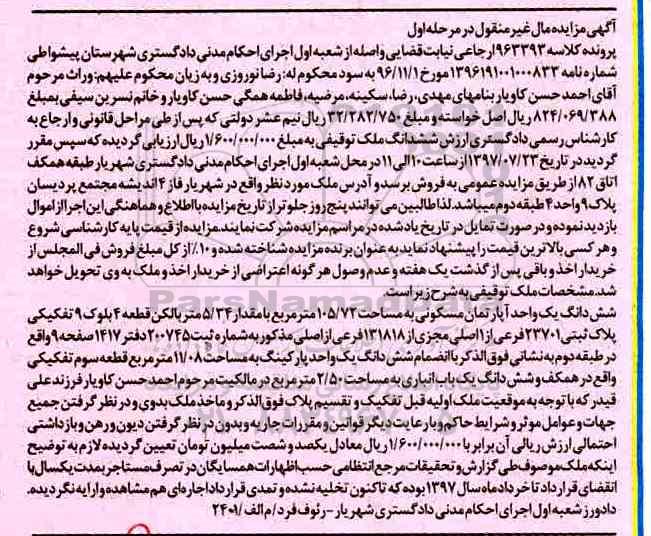 آگهی مزایده مال غیر منقول در مرحله اول
پرونده کلاسه ۹۶۳۳۹۳ ارجاعی نیابت قضایی واصله از شعبه اول اجرای احکام مدنی دادگستری شهرستان پیشوا طی
شماره نامه ۱۳۹۶۱۹۱۰۰۱۰۰۰۸۳۳ مورخ ۹۶/۱۱/۱ به سود محکوم له: رضا نوروزی و به زیان محکوم علیهم: وراث مرحوم
آقای احمد حسن کاویار بنامهای مهدی، رضا، سکینه، مرضیه، فاطمه همگی حسن کاویار و خانم نسرین سیفی بمبلغ
۸۲۴/۰۶۹/۳۸۸ ریال اصل خواسته و مبلغ ۳۲/۲۸۲/۷۵۰ ریال نیم عشر دولتی که پس از طی مراحل قانونی و ارجاع به
کارشناس رسمی دادگستری ارزش ششدانگ ملک توقیفی به مبلغ ۱/۶۰۰/۰۰۰/۰۰۰ ریال ارزیابی گردیده که سپس مقرر
گردید در تاریخ ۱۳۹۷/۰۷/۲۳ از ساعت ۱۰ الی ۱۱ در محل شعبه اول اجرای احکام مدنی دادگستری شهریار طبقه همکف
اتاق ۸۲ از طریق مزایده عمومی به فروش برسد و آدرس ملک مورد نظر واقع در شهریار فاز ۴ اندیشه مجتمع پردیسان
پلاک ۹ واحد ۴ طبقه دوم میباشد. لذا طالبین می توانند پنج روز جلوتر از تاریخ مزایده با اطلاع و هماهنگی این اجرا از اموال
بازدید نموده و در صورت تمایل در تاریخ یاد شده در مراسم مزایده شرکت نمایند. مزایده از قیمت پایه کارشناسی شروع
و هر کسی بالاترین قیمت را پیشنهاد نماید به عنوان برنده مزایده شناخته شده و ۱۰٪ از کل مبلغ فروش فی المجلس از
خریدار اخذ و باقی پس از گذشت یک هفته و عدم وصول هر گونه اعتراضی از خریدار اخذ و ملک به وی تحویل خواهد
شد. مشخصات ملک توقیفی به شرح زیر است.
شش دانگ یک واحد آپارتمان مسکونی به مساحت ۱۰۵/۷۲ متر مربع بامقدار ۵/۳۴ متر بالکن قطعه ۴ بلوک ۹ تفکیکی
پلاک ثبتی ۲۳۷۰۱ فرعی از ۱ اصلی مجزی از ۱۳۱۸۱۸ فرعی از اصلی مذکور به شماره ثبت ۲۰۰۷۴۵ دفتر ۱۴۱۷ صفحه ۹ واقع
در طبقه دوم به نشانی فوق الذکر با انضمام شش دانگ یک واحد پارکینگ به مساحت ۱۱/۰۸ متر مربع قطعه سوم تفکیکی
واقع در همکف و شش دانگ یک باب انباری به مساحت ۲/۵۰ متر مربع در مالکیت مرحوم احمد حسن کاویار فرزند علی
قیدر که با توجه به موقعیت ملک اولیه قبل تفکیک و تقسیم پلاک فوق الذکر و ماخذ ملک بدوی و در نظر گرفتن جمیع
جهات و عوامل موثر و شرایط حاکم و با رعایت دیگر قوانین و مقررات جاریه و بدون در نظر گرفتن دیون و رهن و بازداشتی
احتمالی ارزش ریالی آن برابر با ۱/۶۰۰/۰۰۰/۰۰۰ ریال معادل یکصد و شصت میلیون تومان تعیین گردیده لازم به توضیح
اینکه ملک موصوف طی گزارش و تحقیقات مرجع انتظامی حسب اظهارات همسایگان در تصرف مستاجر بمدت یکسال با
انقضای قرارداد تا خرداد ماه سال ۱۳۹۷ بوده که تاکنون تخلیه نشده و تمدی قرارداد اجاره ای هم مشاهده و ارایه نگردیده.
دادورز شعبه اول اجرای احکام مدنی دادگستری شهریار - رئوف فرد / م الف / ۲۴۰۱
ParsNamadData